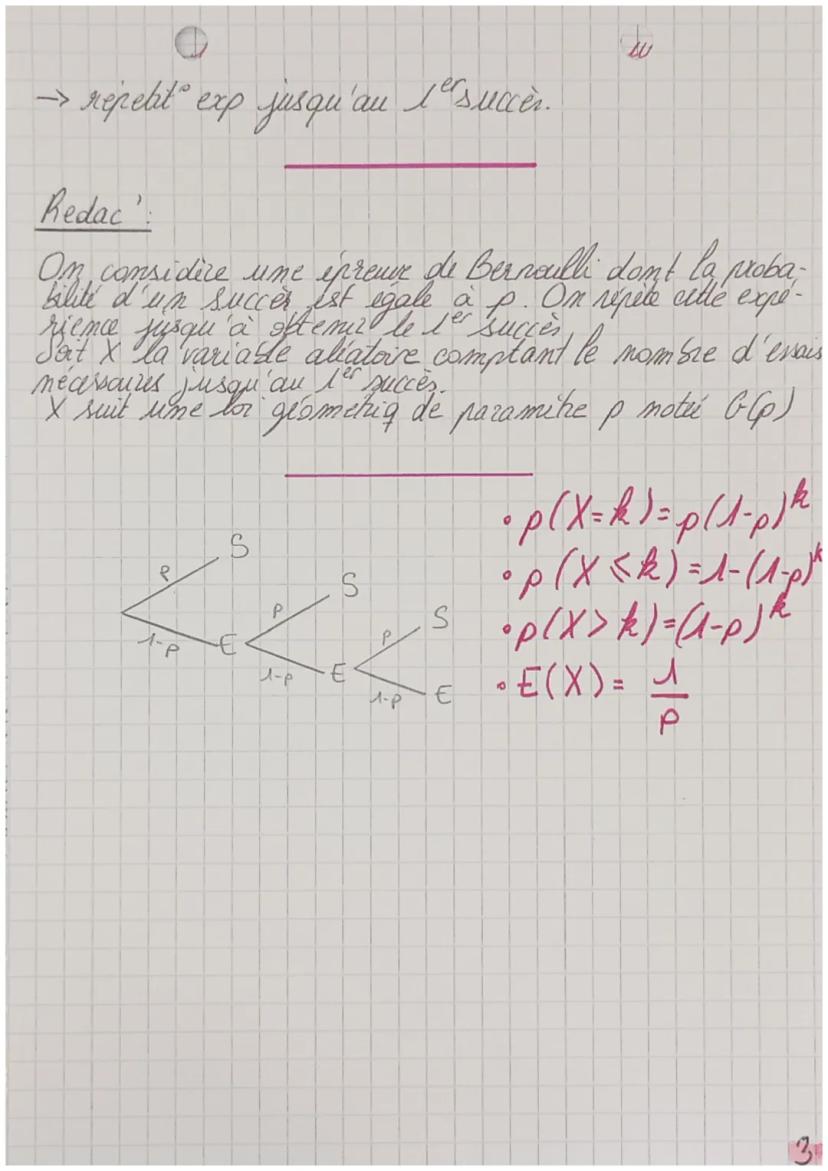 → répetit° exp jusqu'au 1er succès.
Redac':
On considère une épreuve de Bernoulli dont la proba-
bilité d'un succès est égale à p. On répète cette expé-
rience jusqu'à obtenir le 1er succès,
Soit X la variable aléatoire comptant le nombre d'essais
nécessaires jusqu'au 1er succès.
X suit une loi géométriq de paramètre p notée G(p)
• p(X=k)=p(1-p)^k
• p(X≤k)=1-(1-p)^k
• p(X>k)=(1-p)^k
• E(X)= 1/p
p S
1-p E
p S
1-p E
p S
1-p E
3